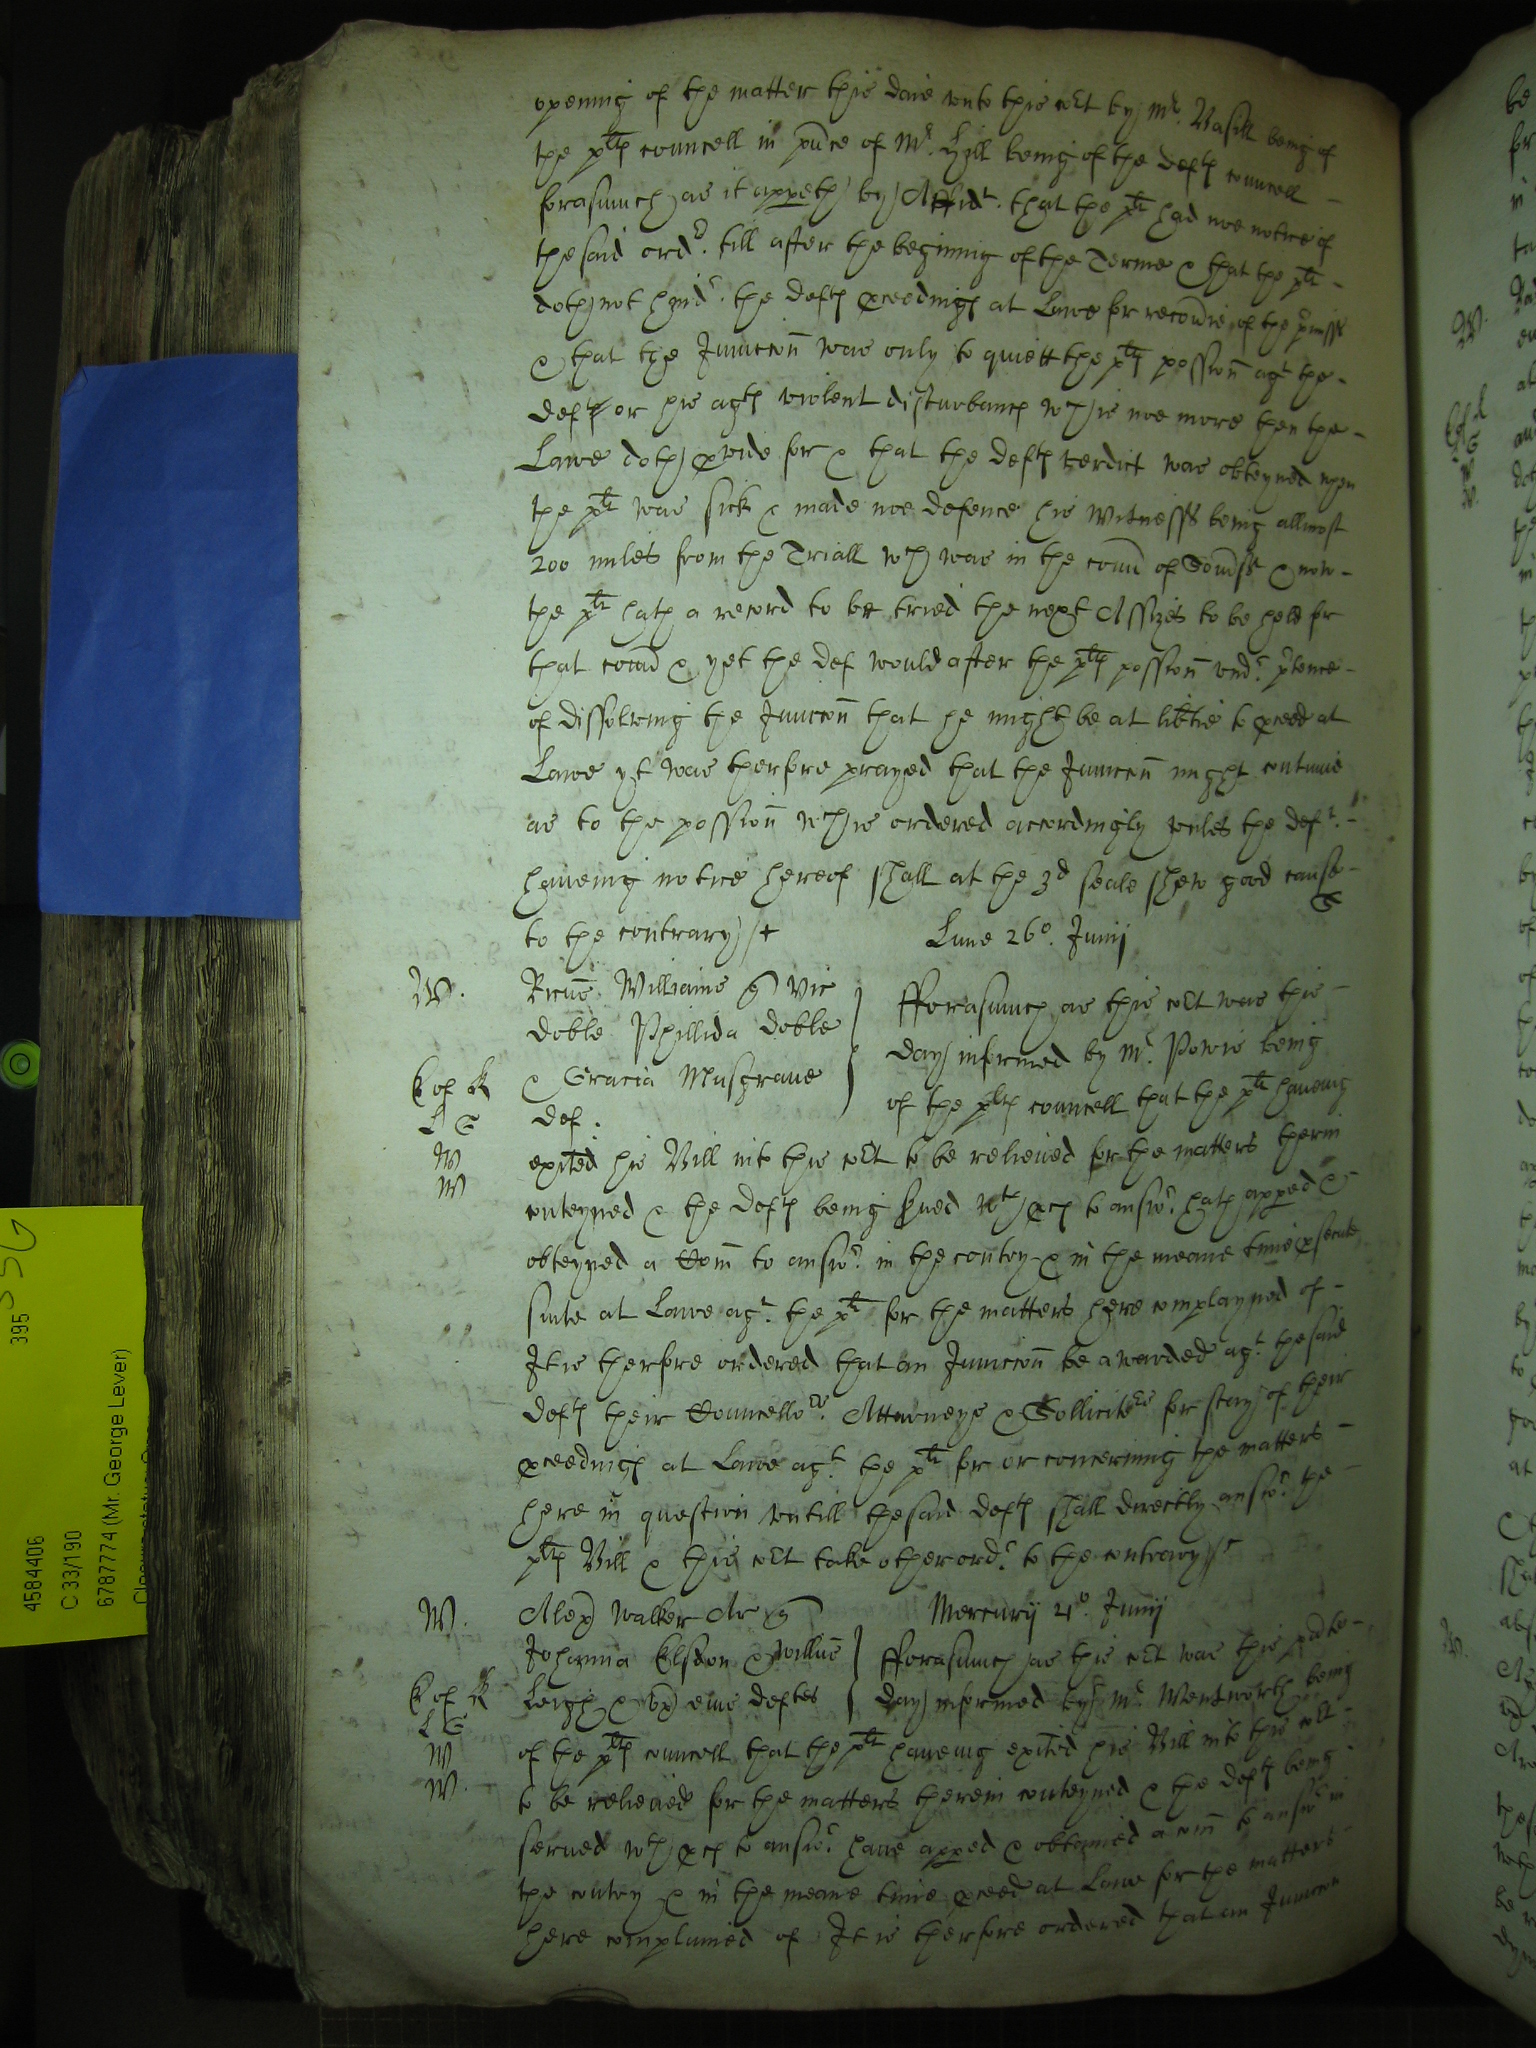 opening of the matter this daie vnto this cort by Mr. Vasill being of
the plts councell in pnce of Mr. Hyll being of the defts councell
forasmuch as it appeth by Affidt. that the plt had noe notice of
the said ordr. till after the beginnig of the Terme & that the plt
doth not hindr. the defts pceedings at Lawe for recoūie of the pmisss
& that the Iniuccōn was only to quiett the plts possiōn agt the
deft or his agts violent disturbance wch is noe more then the
Lawe doth pvide for & that the defts verdict was obteyned vpon
the plt was sick & made noe defence his witnesss being allmost
200 miles from the Triall wch was in the coun of Somsst & now
the plt hath a record to be tried the next Assizes to be held for
that coun & yet the def would after the plts possiōn vndr. ptence
of dissolving the Iniuccōn that he might be at libtie to pceed at
Lawe yt was therfore prayed that the Iniuccōn might contynue
as to the possiōn wch is ordered accordingly vnles the deft.
haveing notice hereof shall at the 3d seale shew good cause
to the contrary
Lune 26o. Junij
W.
Ricus Williams q Vic
doble Phillida doble
& Gracia Musgrave
def.
fforasmuch as this cort was this
day informed by Mr. Powis being
of the plts councell that the plt haveing
K of R
L G
W
W
exited his Bill into this cort to be relieved for the matters therin
conteyned & the defts being served wth pcs to answr. hath apped &
obteyned a Com to answr. in the contry & in the meane time psecute
suite at Lawe agt. the plt for the matters here complayned of
It is therfore ordered that an Iniuccōn be awarded agt. the said
defts their Councellors. Attorneys & Sollicitors for stay of their
pceedings at Lawe agt. the plt for or concerning the matters
here in question vntill the said defts shall directly answr. the
plts Bill & this cort take other ordr. to the contrary
W.
Alexr walker Ar q
Johanna Elsdon & willus
Leigh & ux eius deftes
Mercurij 21o. Junij
fforasmuch as this cort was this pnte
day informed by Mr. Wentworth being
K of R
L G
W
W.
of the plts councell that the plt haveing exited his Bill into this cort
to be relieved for the matters therein conteyned & the defts being
served wth pcs to answr. have apped & obtained a com to answr in
the contry & in the meane time pceed at Lawe for the matters
here complained of It is therfore ordered that an Iniuccon
4584406
C 33/190
6787774 (Mr. George Lever)
395